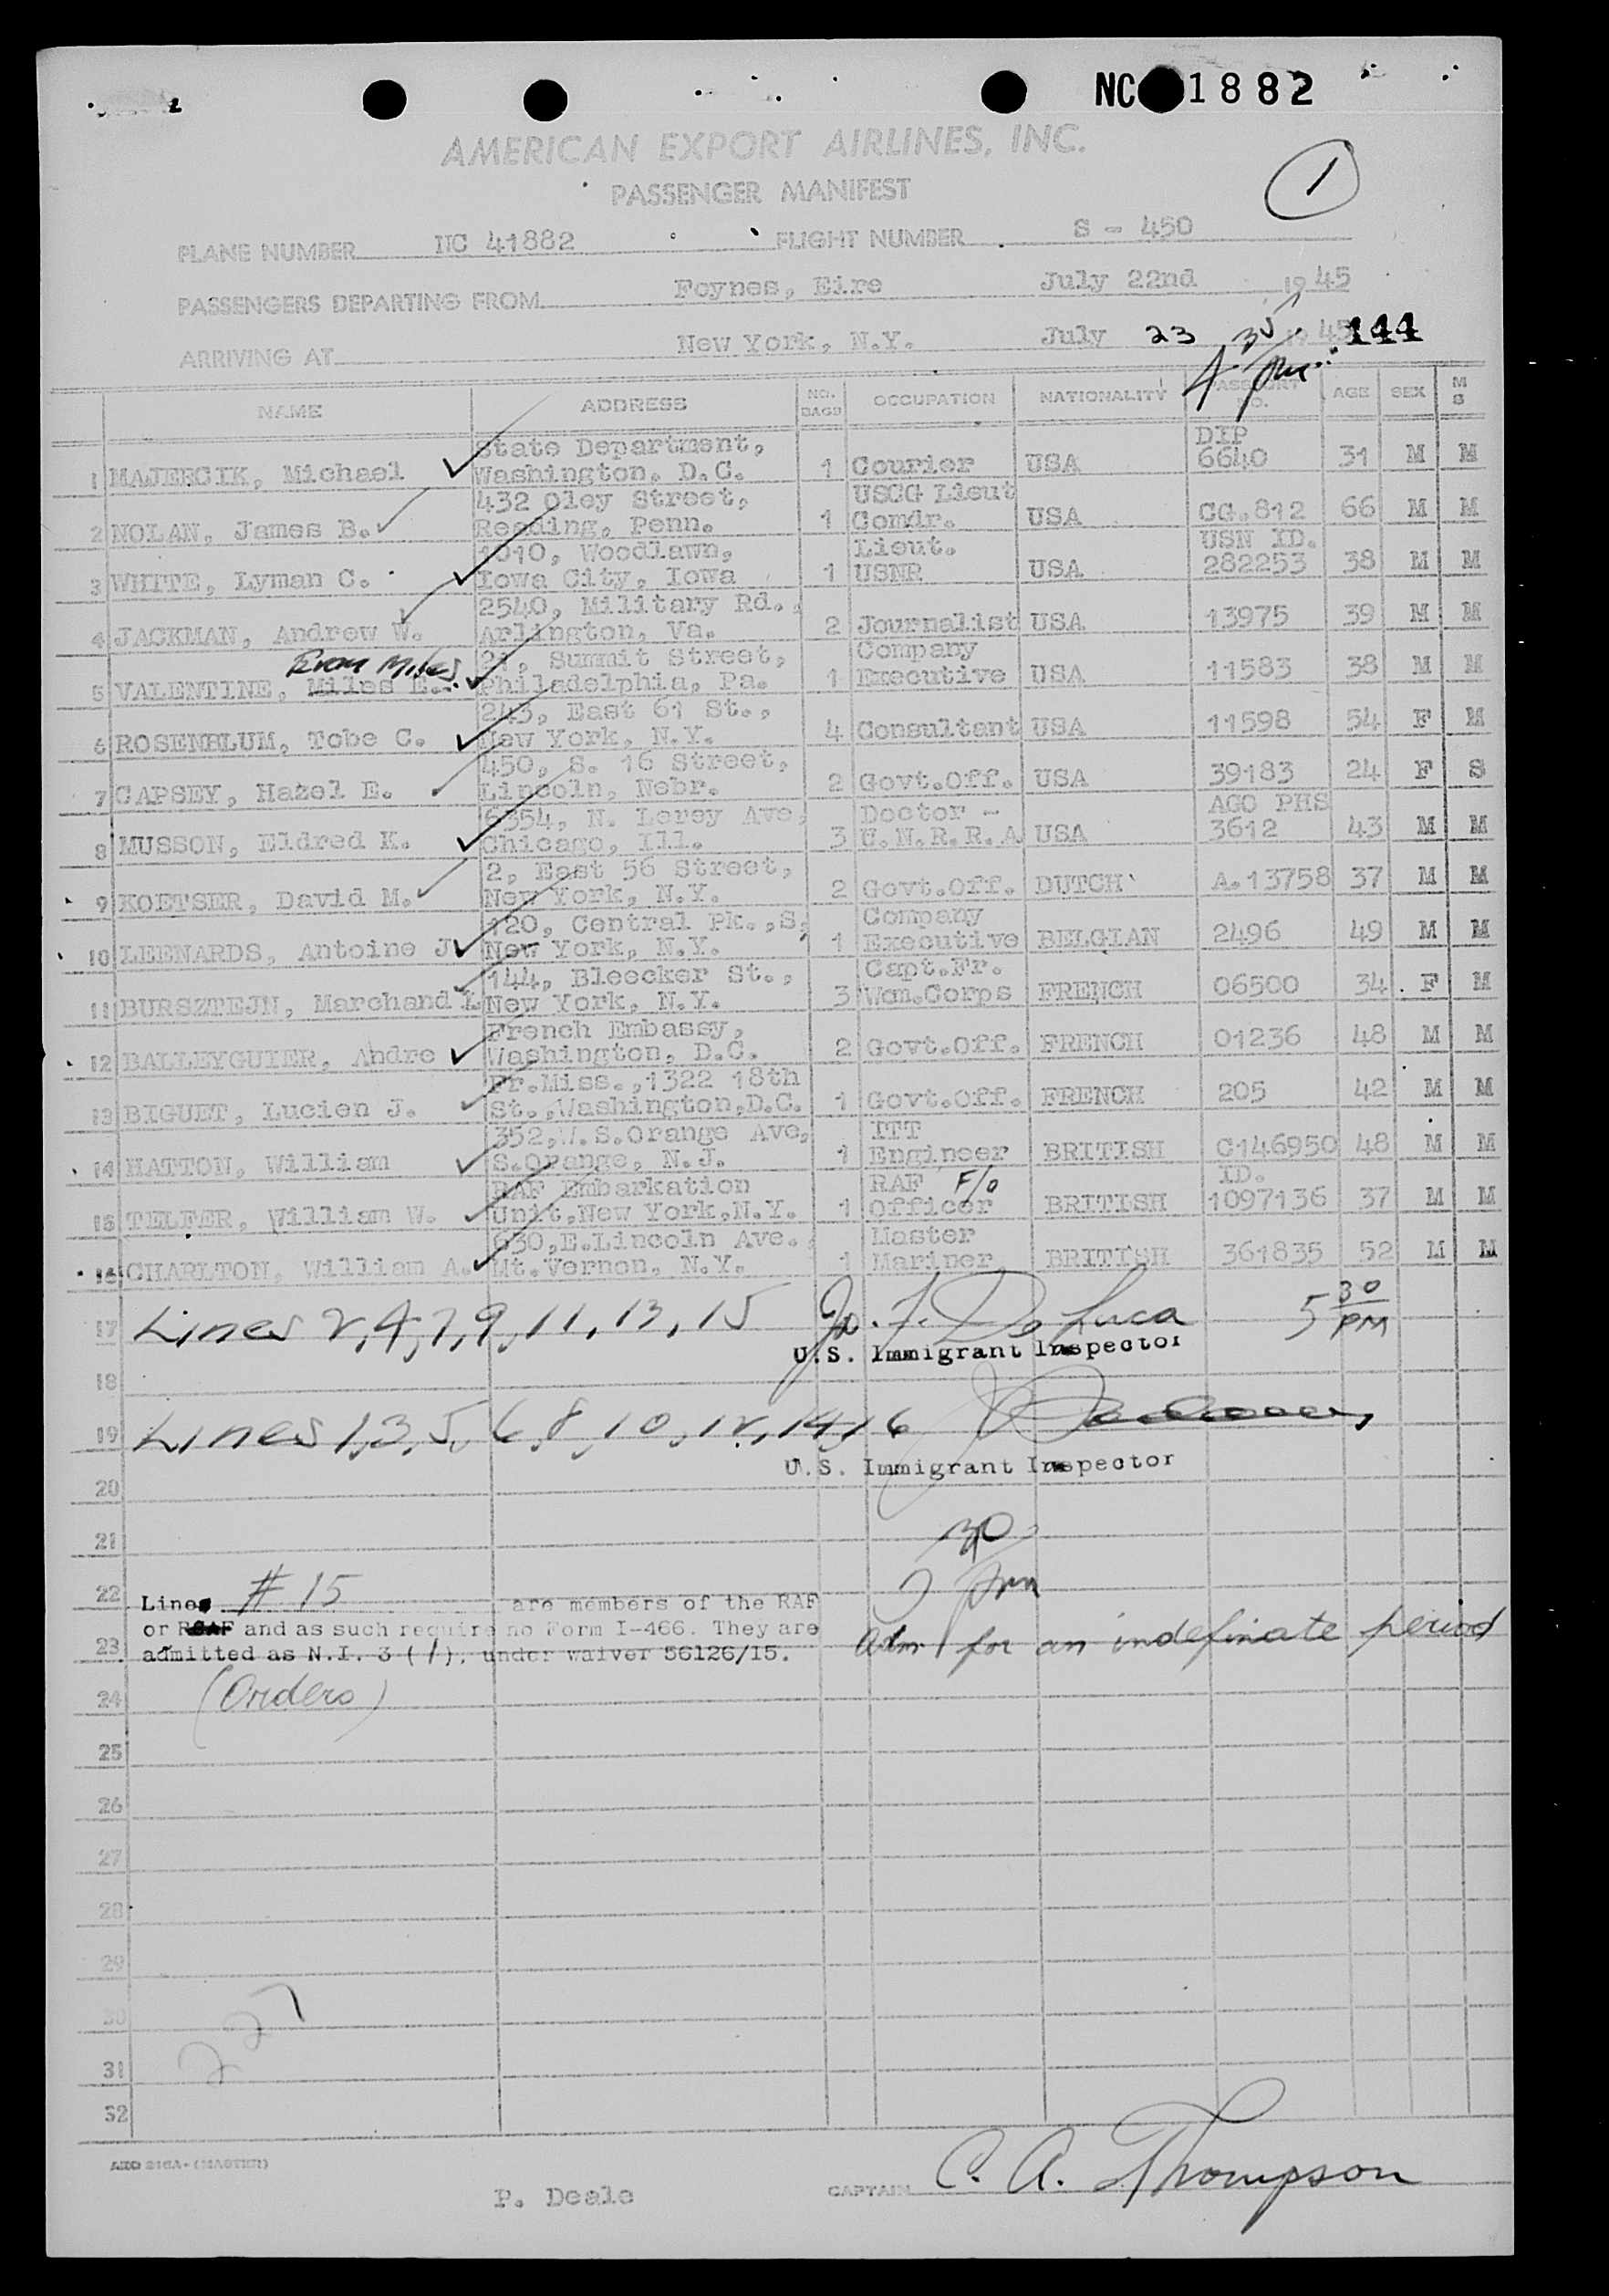 NC 1882
AMERICAN EXPORT AIRLINES, INC.
1
PASSENGER MANIFEST
PLANE NUMBER NC 41882 FLIGHT NUMBER S - 450
PASSENGERS DEPARTING FROM Foynes, Eire July 22nd 1945
ARRIVING AT New York, N.Y. July 23 1945 144
4 35 pm
NAME ADDRESS NO. BAGS OCCUPATION NATIONALITY PASSPORT NO. AGE SEX M S
State Department, DIP
1 MAJERCIK, Michael Washington. D.C. 1 Courier USA 6640 31 M M
432 Oley Street, USCG Lieut
2 NOLAN, James B. Reading, Penn. 1 Comdr. USA CG.812 66 M M
1010, Woodlawn, Lieut. USN ID.
3 WHITE, Lyman C. Iowa City, Iowa 1 USNR USA 282253 38 M M
2540, Military Rd.,
4 JACKMAN, Andrew W. Arlington, Va. 2 Journalist USA 13975 39 M M
Evan Miles 21, Summit Street, Company
5 VALENTINE, Miles E. Philadelphia, Pa. 1 Executive USA 11583 38 M M
243, East 61 St.,
6 ROSENBLUM, Tobe C. New York, N.Y. 4 Consultant USA 11598 54 F M
450, S. 16 Street,
7 CAPSEY, Hazel E. Lincoln, Nebr. 2 Govt.Off. USA 39183 24 F S
6354, N. Leroy Ave, Doctor - AGO PHS
8 MUSSON, Eldred K. Chicago, Ill. 3 U.N.R.R.A USA 3612 43 M M
2, East 56 Street,
9 KOETSER, David M. New York, N.Y. 2 Govt.Off. DUTCH A.13758 37 M M
120, Central Pk.,S, Company
10 LEENARDS, Antoine J New York, N.Y. 1 Executive BELGIAN 2496 49 M M
144, Bleecker St., Capt.Fr.
11 BURSZTEJN, Marchand L New York, N.Y. 3 Wom.Corps FRENCH 06500 34 F M
French Embassy,
12 BALLEYGUIER, Andre Washington, D.C. 2 Govt.Off. FRENCH 01236 48 M M
Fr.Miss.,1322 18th
13 BIGUET, Lucien J. St.,Washington,D.C. 1 Govt.Off. FRENCH 205 42 M M
352,W.S.Orange Ave, ITT
14 HATTON, William S.Orange, N.J. 1 Engineer BRITISH C146950 48 M M
RAF Embarkation RAF F/O ID.
15 TELFER, William W. Unit,New York,N.Y. 1 Officer BRITISH 1097136 37 M M
630,E.Lincoln Ave., Master
16 CHARLTON, William A. Mt.Vernon, N.Y. 1 Mariner BRITISH 361835 52 M M
17 Lines 2,4,7,9,11,13,15 Jo. F. De Luca 5 30 PM
U.S. Immigrant Inspector
18
19 Lines 1,3,5,6,8,10,12,14,16
U.S. Immigrant Inspector
20
21
30
pm
22 Lines #15 are members of the RAF
or RCAF and as such require no Form I-466. They are
23 admitted as N.I. 3 (1), under waiver 56126/15. Adm for an indefinate period
24 (Orders)
25
26
27
28
29
30
227
31
32
P. Deale CAPTAIN C. A. Thompson